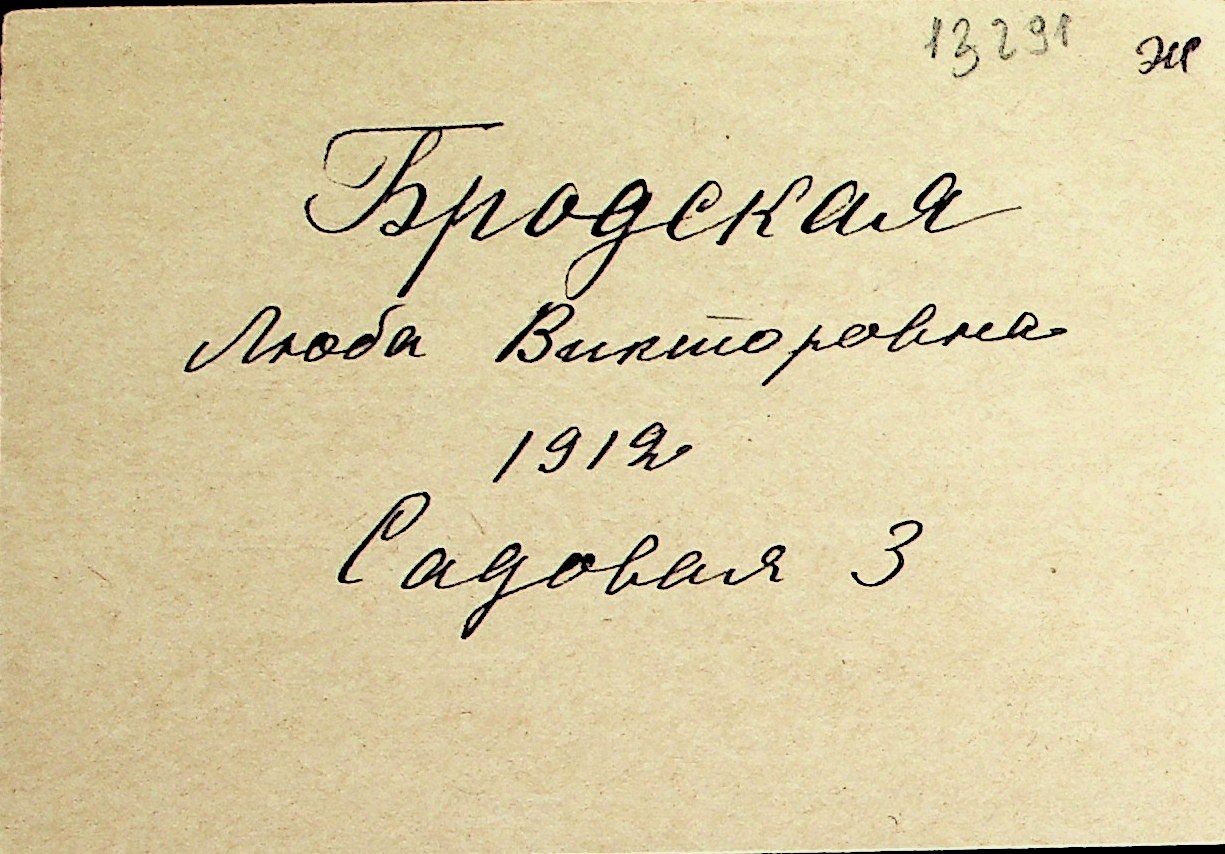 13291 ж
Бродская
Люба Викторовна
1912
Садовая 3